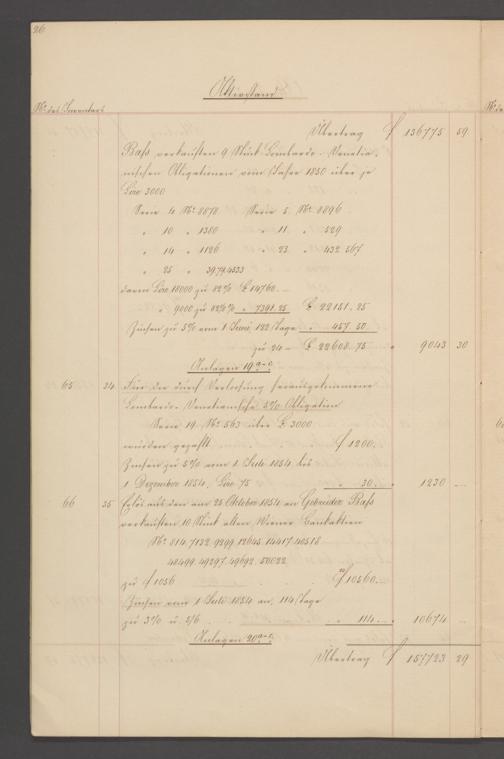 26
Aktivstand
Nº des Inventars
Übertrag f 136775 59
Bass verkauften 9 Stück Lombardo-Venetia-
nischen Obligationen vom Jahre 1850 über je
Lire 3000
Serie 4 Nº 8878 Serie 5 Nº 8896
" 10 " 1380 " 11 " 529
" 14 " 1126 " 23 " 432. 567
" 25 " 3979.4533
davon Lire 18000 zu 82% £ 14760.—
" 9000 zu 82⅛% " 7391.25 £ 22151.25
Zinsen zu 5% vom 1 Juni, 122 Tage " 457.50
zu 24— £ 22608.75 " 9043 30
Anlagen 19 a-c
65 34 Für die durch Verlosung herausgekommene
Lombardo-Venetianische 5% Obligation
Serie 19 Nº 563 über £ 3000
wurden gezahlt f 1200.
Zinsen zu 5% vom 1 Juli 1854 bis
1 Dezember 1854, Lire 75 " 30.— " 1230 —
66 35 Erlös aus den am 25 Oktober 1854 an Gebrüder Bass
verkauften 10 Stück alten Wiener Bankaktien
Nº 814. 7132. 9299. 12645. 14417. 40518
48499. 49297. 49692. 50022
zu f 1056 f 10560.—
Zinsen vom 1 Juli 1854 an, 114 Tage
zu 3% u. 5/6 " 114.— " 10674 —
Anlagen 20 a-c
Übertrag f 157723 29